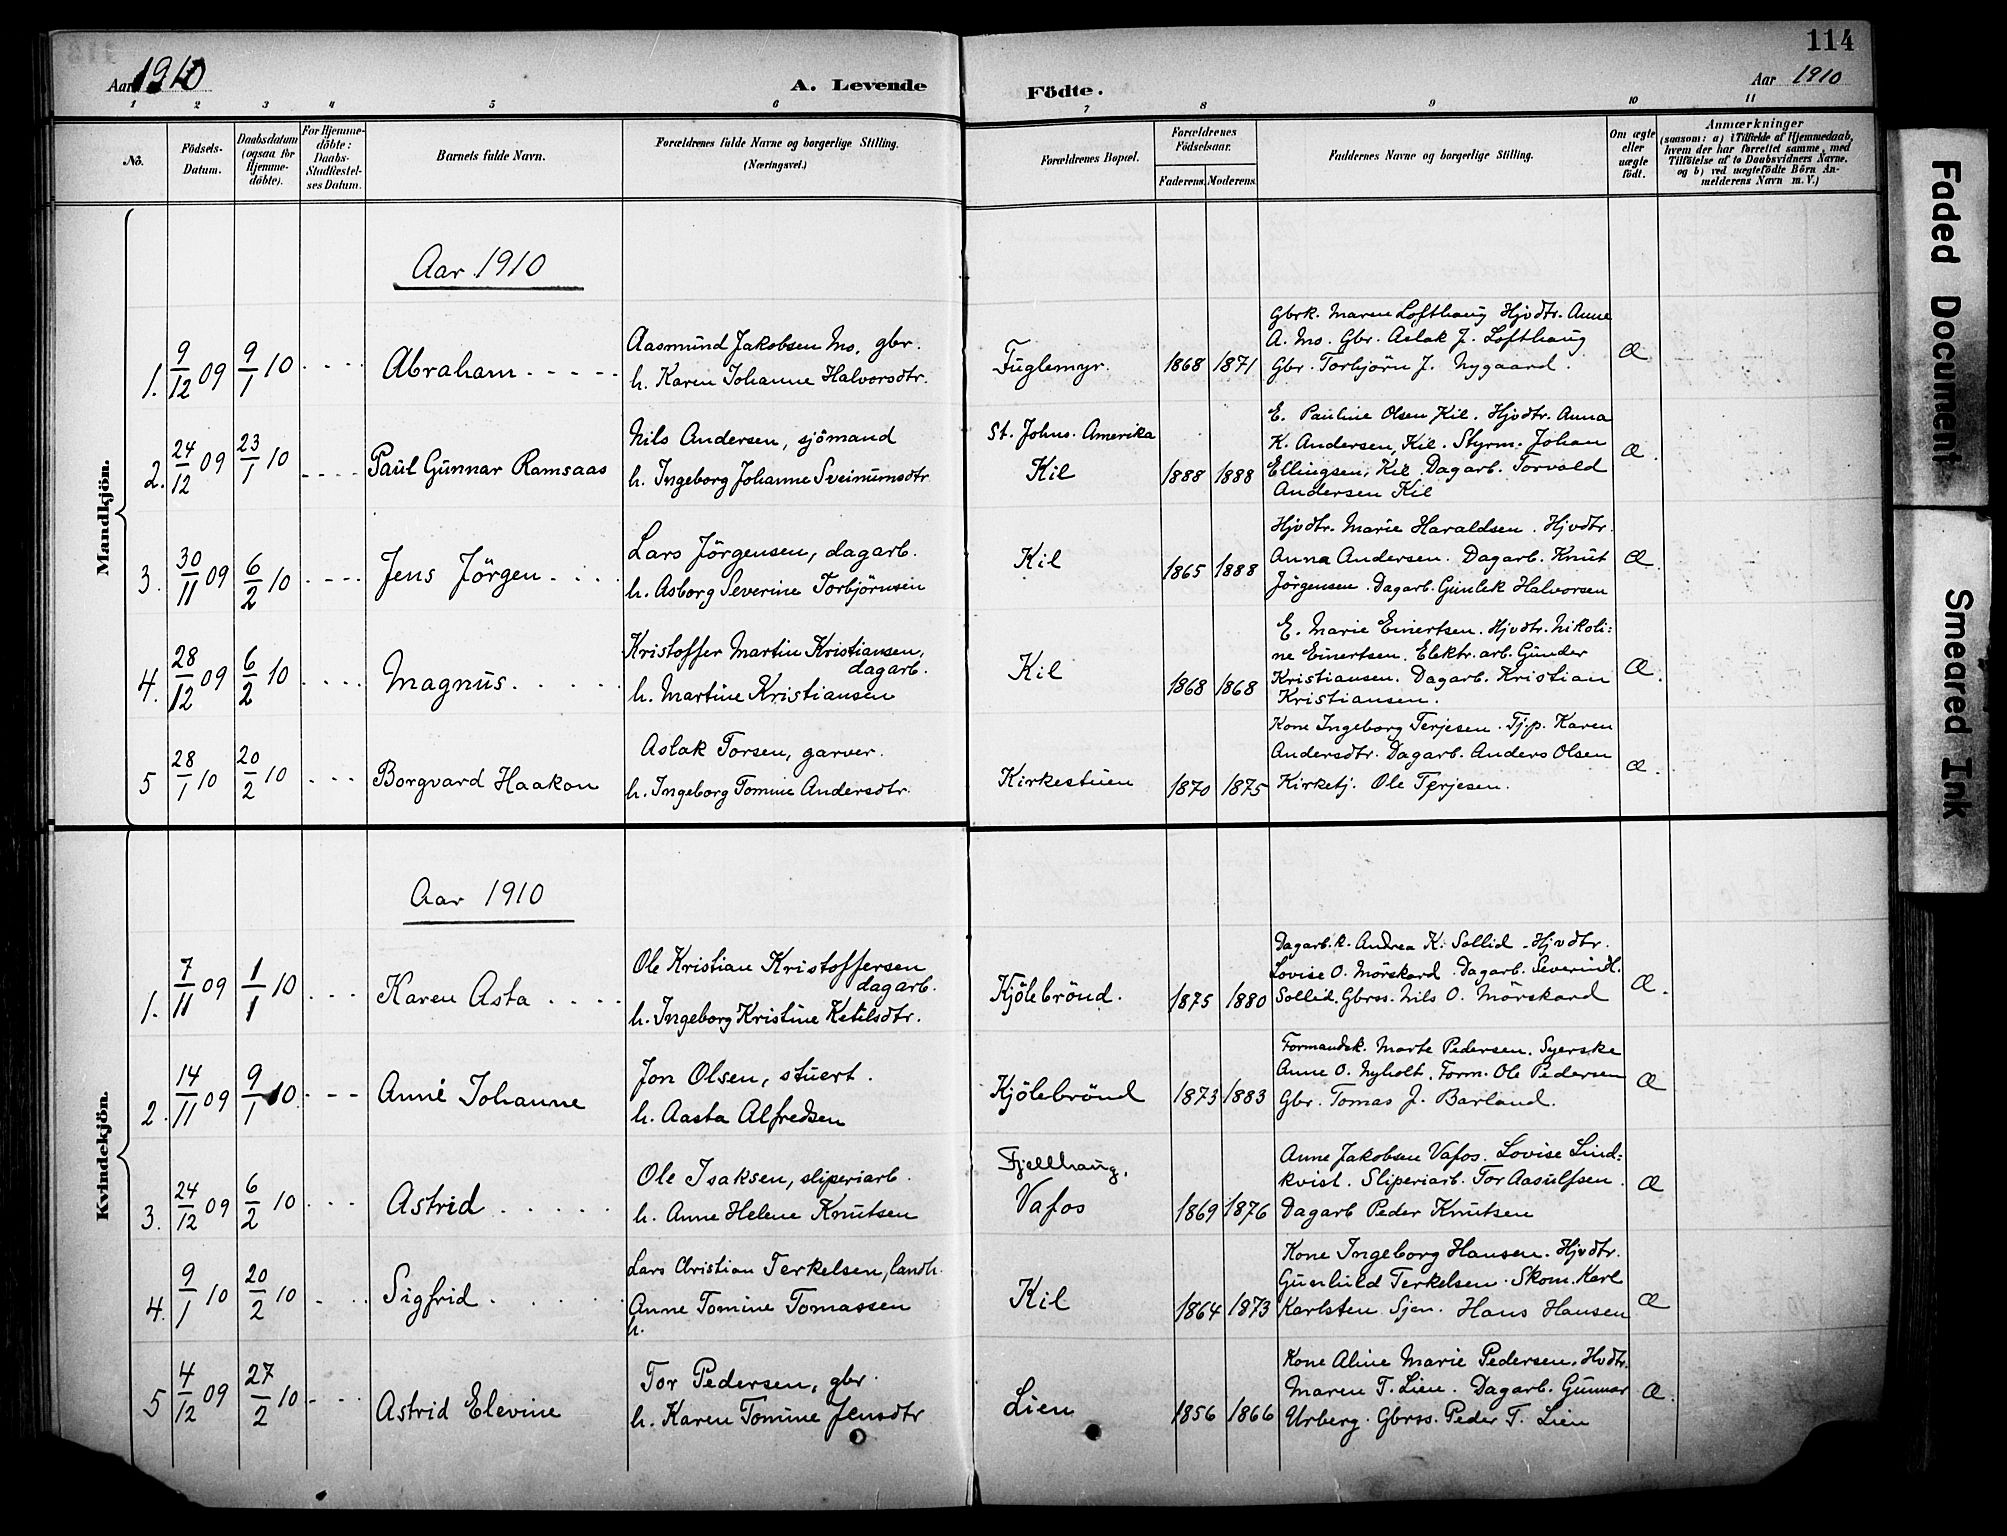 114
Aar 1910
A. Levende Födte.
Aar 1910
1 2 3 4 5 6 7 8 9 10 11
No.
Födsels-Datum.
Daabsdatum (ogsaa for Hjemme-döbte).
For Hjemme-döbte: Daabs-Stadfæstel-ses Datum.
Barnets fulde Navn.
Forældrenes fulde Navne og borgerlige Stilling.
(Næringsvei.)
Forældrenes Bopæl.
Forældrenes Födselsaar.
Faderens. Moderens.
Faddernes Navne og borgerlige Stilling.
Om ægte eller uægte födt.
Anmærkninger
(saasom: a) i Tilfælde af Hjemmedaab, hvem der har forrettet samme, med Tilföielse af to Daabsvidners Navne. og b) ved uægtefödte Börn An-melderens Navn m.V.)
Mandkjön.
Aar 1910
1. 9/12 09 9/1 10 Abraham
Aasmund Jakobsen Mo, gbr.
h. Karen Johanne Halvorsdtr.
Fuglemyr. 1868 1871
Gbrk. Maren Lofthaug Hjvdtr. Anne
A. Mo. Gbr. Aslak J. Lofthaug
Gbr. Torbjörn J. Nygaard.
Æ
2. 24/12 09 23/1 10 Paul Gunnar Ramsaas
Nils Andersen, sjömand
h. Ingeborg Johanne Sveinumsdtr
St. Johns. Amerika
Kil 1888 1888
E. Pauline Olsen Kil. Hjvdtr. Anna
K. Andersen, Kil. Styrm. Johan
Ellingsen, Kil. Dagarb. Torvald
Andersen Kil
Æ.
3. 30/11 09 6/2 10 Jens Jörgen
Lars Jörgensen, dagarb.
h. Asborg Severine Torbjörnsen
Kil 1865 1888
Hjvdtr. Marie Haraldsen. Hjvdtr.
Anna Andersen. Dagarb. Knut
Jörgensen. Dagarb. Gunlek Halvorsen
Æ.
4. 28/12 09 6/2 10 Magnus.
Kristoffer Martin Kristiansen,
dagarb.
h. Martine Kristiansen
Kil 1868 1868
E. Marie Einertsen. Hjvdtr. Nikoli:
ne Einertsen. Elektr. arb. Gunder
Kristiansen. Dagarb. Kristian
Kristiansen.
Æ.
5 28/1 10 20/2 10 Borgvard Haakon
Aslak Torsen, garver.
h. Ingeborg Tomine Andersdtr.
Kirkestuen 1870 1875
Kone Ingeborg Terjesen. Tj.p. Karen
Andersdtr. Dagarb. Anders Olsen
Kirketj. Ole Terjesen.
Æ.
Kvindekjön.
Aar 1910
1. 7/11 09 1/1 10 Karen Asta
Ole Kristian Kristoffersen
dagarb.
h. Ingeborg Kristine Ketilsdtr.
Kjölebrönd. 1875 1880
Dagarb.k. Andrea K. Sollid. Hjvdtr.
Lovise O. Mörskard. Dagarb. Severin L.
Sollid. Gbrss. Nils O. Mörskard
Æ.
2. 14/11 09 9/1 10 Anne Johanne
Jon Olsen, stuert.
h. Aasta Alfredsen
Kjölebrönd 1873 1883
Formandsk. Marte Pedersen. Syerske
Anne O. Nyholt. Form. Ole Pedersen
Gbr. Tomas J. Barland.
Æ
3. 24/12 09 6/2 10 Astrid
Ole Isaksen, sliperiarb.
h. Anne Helene Knutsen
Fjellhaug,
Vafos 1869 1876
Anne Jakobsen Vafos. Lovise Lind:
kvist. Sliperiarb. Tor Aasulfsen.
Dagarb Peder Knutsen
Æ
4. 9/1 10 20/2 10 Sigfrid
Lars Christian Terkelsen, landh.
Anne Tomine Tomassen
h.
Kil 1864 1873
Kone Ingeborg Hansen. Hjvdtr.
Gunhild Terkelsen. Skom. Karl
Karlsten Sjm. Hans Hansen
Æ
5 4/12 09 27/2 10 Astrid Elevine
Tor Pedersen, gbr.
h. Karen Tomine Jensdtr
Lien 1856 1866
Kone Aline Marie Pedersen. Hvdtr.
Maren T. Lien. Dagarb. Gunnar
Urberg. Gbrss. Peder T. Lien
Æ.
Faded Document
Smeared Ink